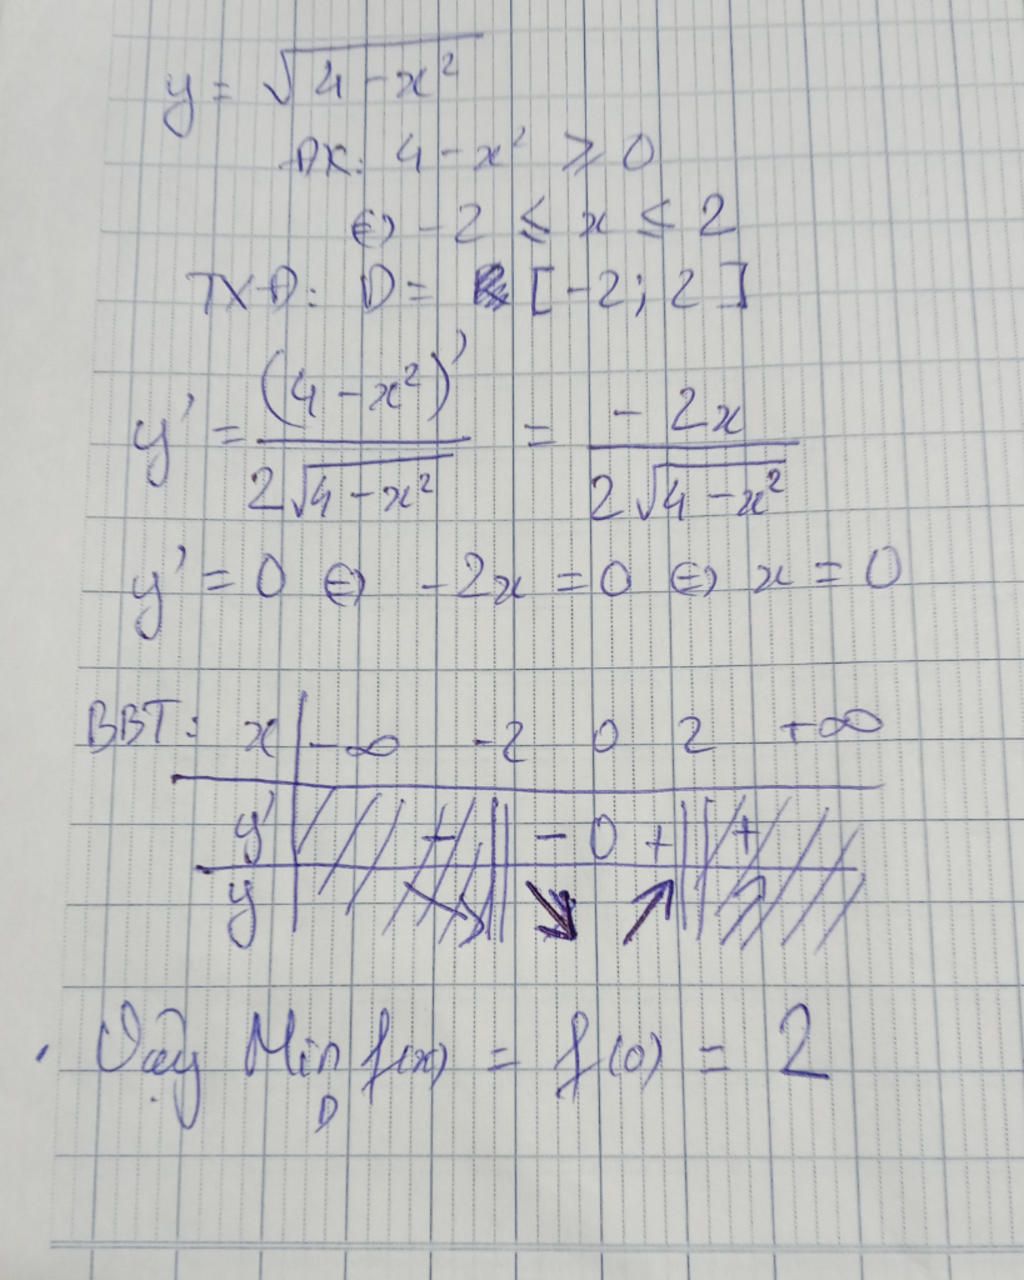 y = √(4 - x²)
ĐK: 4 - x² ≥ 0
⇔ -2 ≤ x ≤ 2
TXĐ: D = [-2; 2]
y' = (4 - x²)' / 2√(4 - x²) = -2x / 2√(4 - x²)
y' = 0 ⇔ -2x = 0 ⇔ x = 0
BBT: x | -∞ -2 0 2 +∞
y' | - || - 0 + || +
y | ↘ || ↘ ↗ || ↗
Vậy Min f(x) = f(0) = 2
D